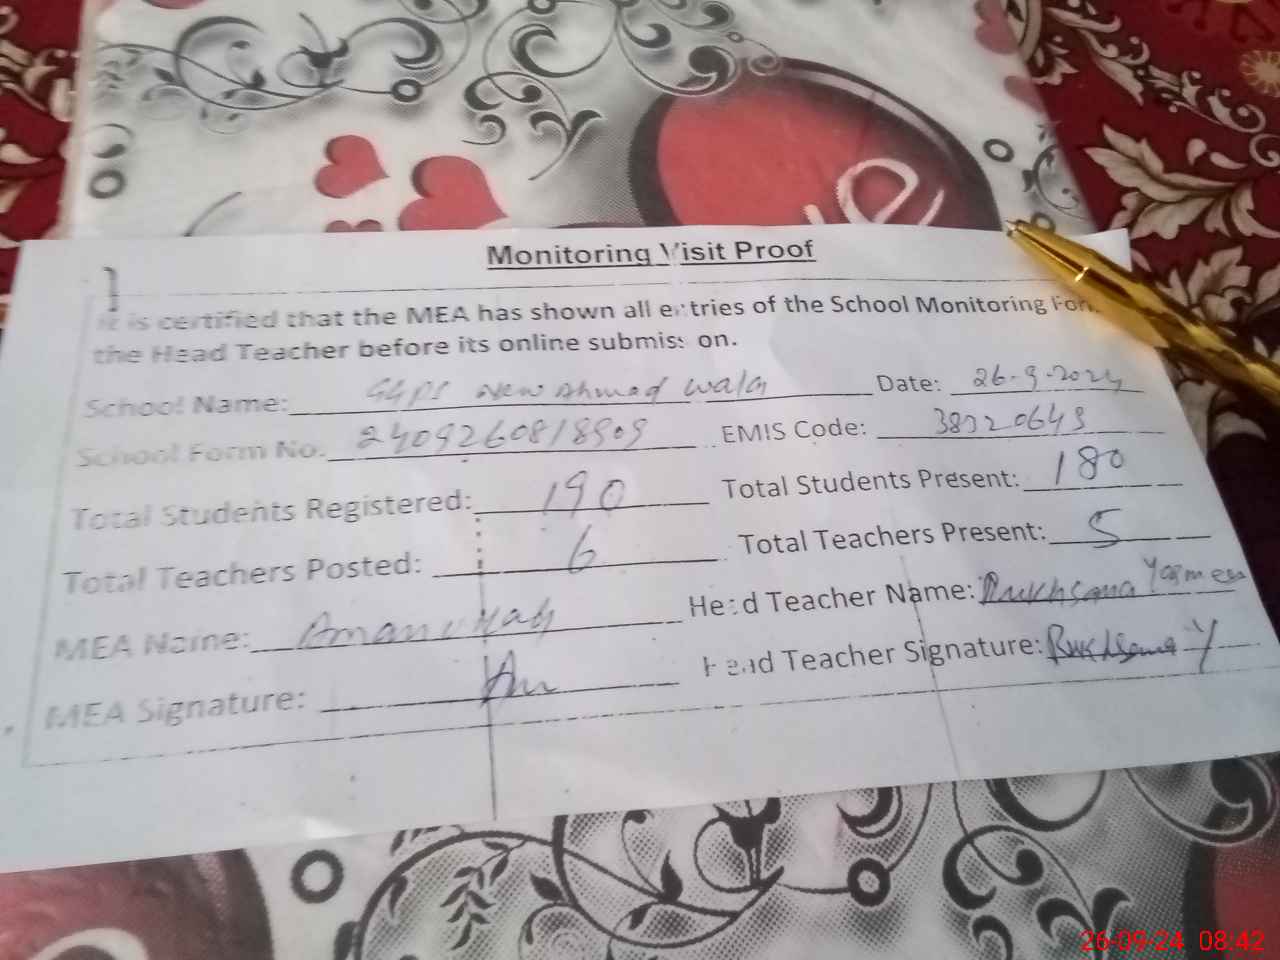 Monitoring Visit Proof
It is certified that the MEA has shown all entries of the School Monitoring Form
the Head Teacher before its online submission.
School Name: GGPS New Ahmad Wala Date: 26-9-2024
School Form No. 2409260818909 EMIS Code: 38320643
Total Students Registered: 190 Total Students Present: 180
Total Teachers Posted: 6 Total Teachers Present: 5
MEA Name: Amanullah Head Teacher Name: Rukhsana Yasmeen
MEA Signature: Head Teacher Signature: Rukhsana Y
26-09-24 08:42